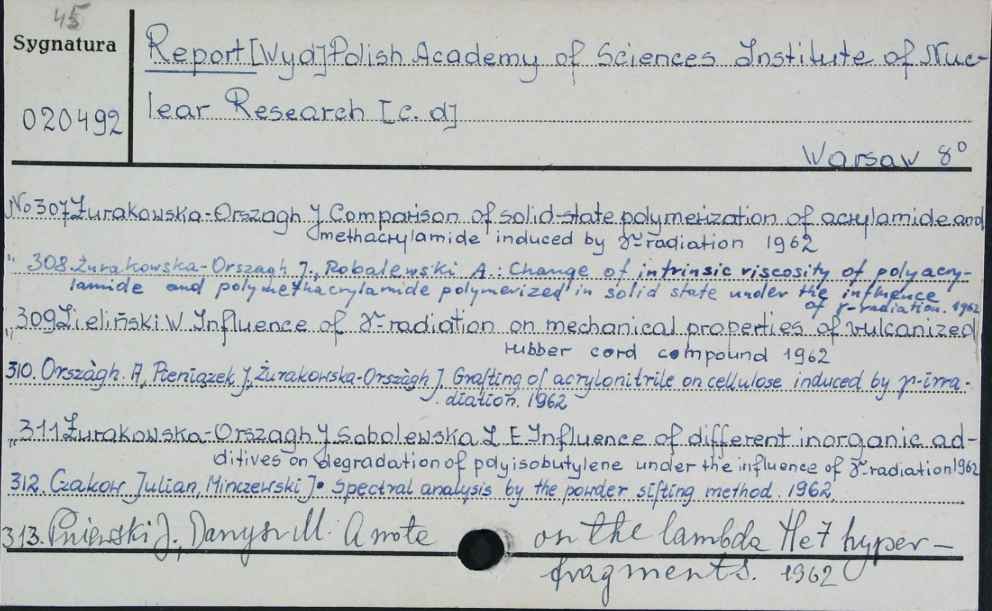 45
Sygnatura
020492
Report [Wyd] Polish Academy of Sciences Institute of Nuc-
lear Research [c. d]
Warsaw 8°
No 307 Żurakowska-Orszagh J Comparison of solid-state polymerization of acrylamide and
methacrylamide induced by γ-radiation 1962
" 308. Żurakowska-Orszagh J., Robalewski A.: Change of intrinsic viscosity of polyacry-
lamide and polymethacrylamide polymerized in solid state under the influence
of γ-radiation. 1962
" 309 Zieliński W. Influence of γ-radiation on mechanical properties of vulcanized
rubber cord compound 1962
310. Orszàgh. A, Pieniążek J, Żurakowska-Orszàgh J. Grafting of acrylonitrile on cellulose induced by γ-irra-
diation. 1962
" 311 Żurakowska-Orszagh J Sobolewska L E Influence of different inorganic ad-
ditives on degradation of polyisobutylene under the influence of γ-radiation 1962
312. Czakow Julian, Minczewski J. Spectral analysis by the powder sifting method. 1962
313. Pniewski J., Danysz M. A note on the lambda He7 hyper-
fragments. 1962